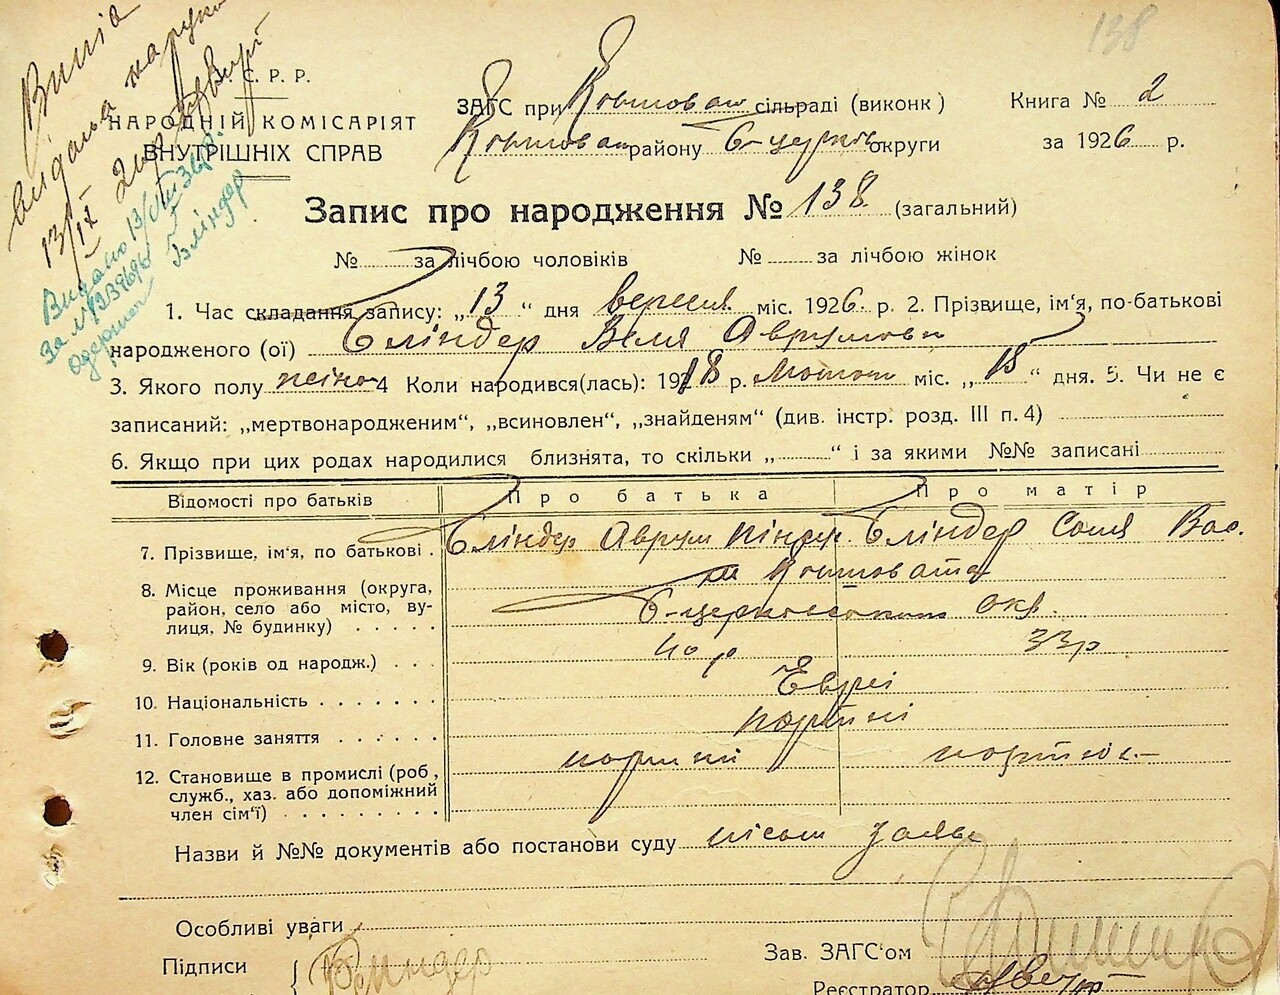 138
Випіс
видано на руки
13/IX 26 р.
Видано 13/VIII 36 р.
За №
Бліндер
У. С. Р. Р.
НАРОДНІЙ КОМІСАРІЯТ
ВНУТРІШНІХ СПРАВ
ЗАГС при Ковшоват сільраді (виконк)
Книга № 2
Ковшоват району Б-церків округи
за 1926 р.
Запис про народження № 138 (загальний)
№ за лічбою чоловіків № за лічбою жінок
1. Час складання запису: „13“ дня вересня міс. 1926 р. 2. Прізвище, ім'я, по-батькові
народженого (ої) Бліндер Веля Аврумовн
3. Якого полу жіноч 4 Коли народився(лась): 1918 р. міс. „15“ дня. 5. Чи не є
записаний: „мертвонародженим“, „всиновлен“, „знайденям“ (див. інстр. розд. III п. 4)
6. Якщо при цих родах народилися близнята, то скільки „ “ і за якими №№ записані
Відомості про батьків Про батька Про матір
7. Прізвище, ім'я, по батькові . Бліндер Аврум Пінхер. Бліндер Соня Вас.
8. Місце проживання (округа, м Ковшовата
район, село або місто, ву- Б-церковськ окр.
лиця, № будинку) . . . . .
9. Вік (років од народж.) . . . 40 р 33 р
10. Національність . . . . . . . Евреї
11. Головне заняття . . . . . .
12. Становище в промислі (роб,
служб., хаз. або допоміжний
член сім'ї) . . . . . . . . .
Назви й №№ документів або постанови суду пісьм заява
Особливі уваги
Підписи { Бліндер
Зав. ЗАГС'ом
Реєстратор